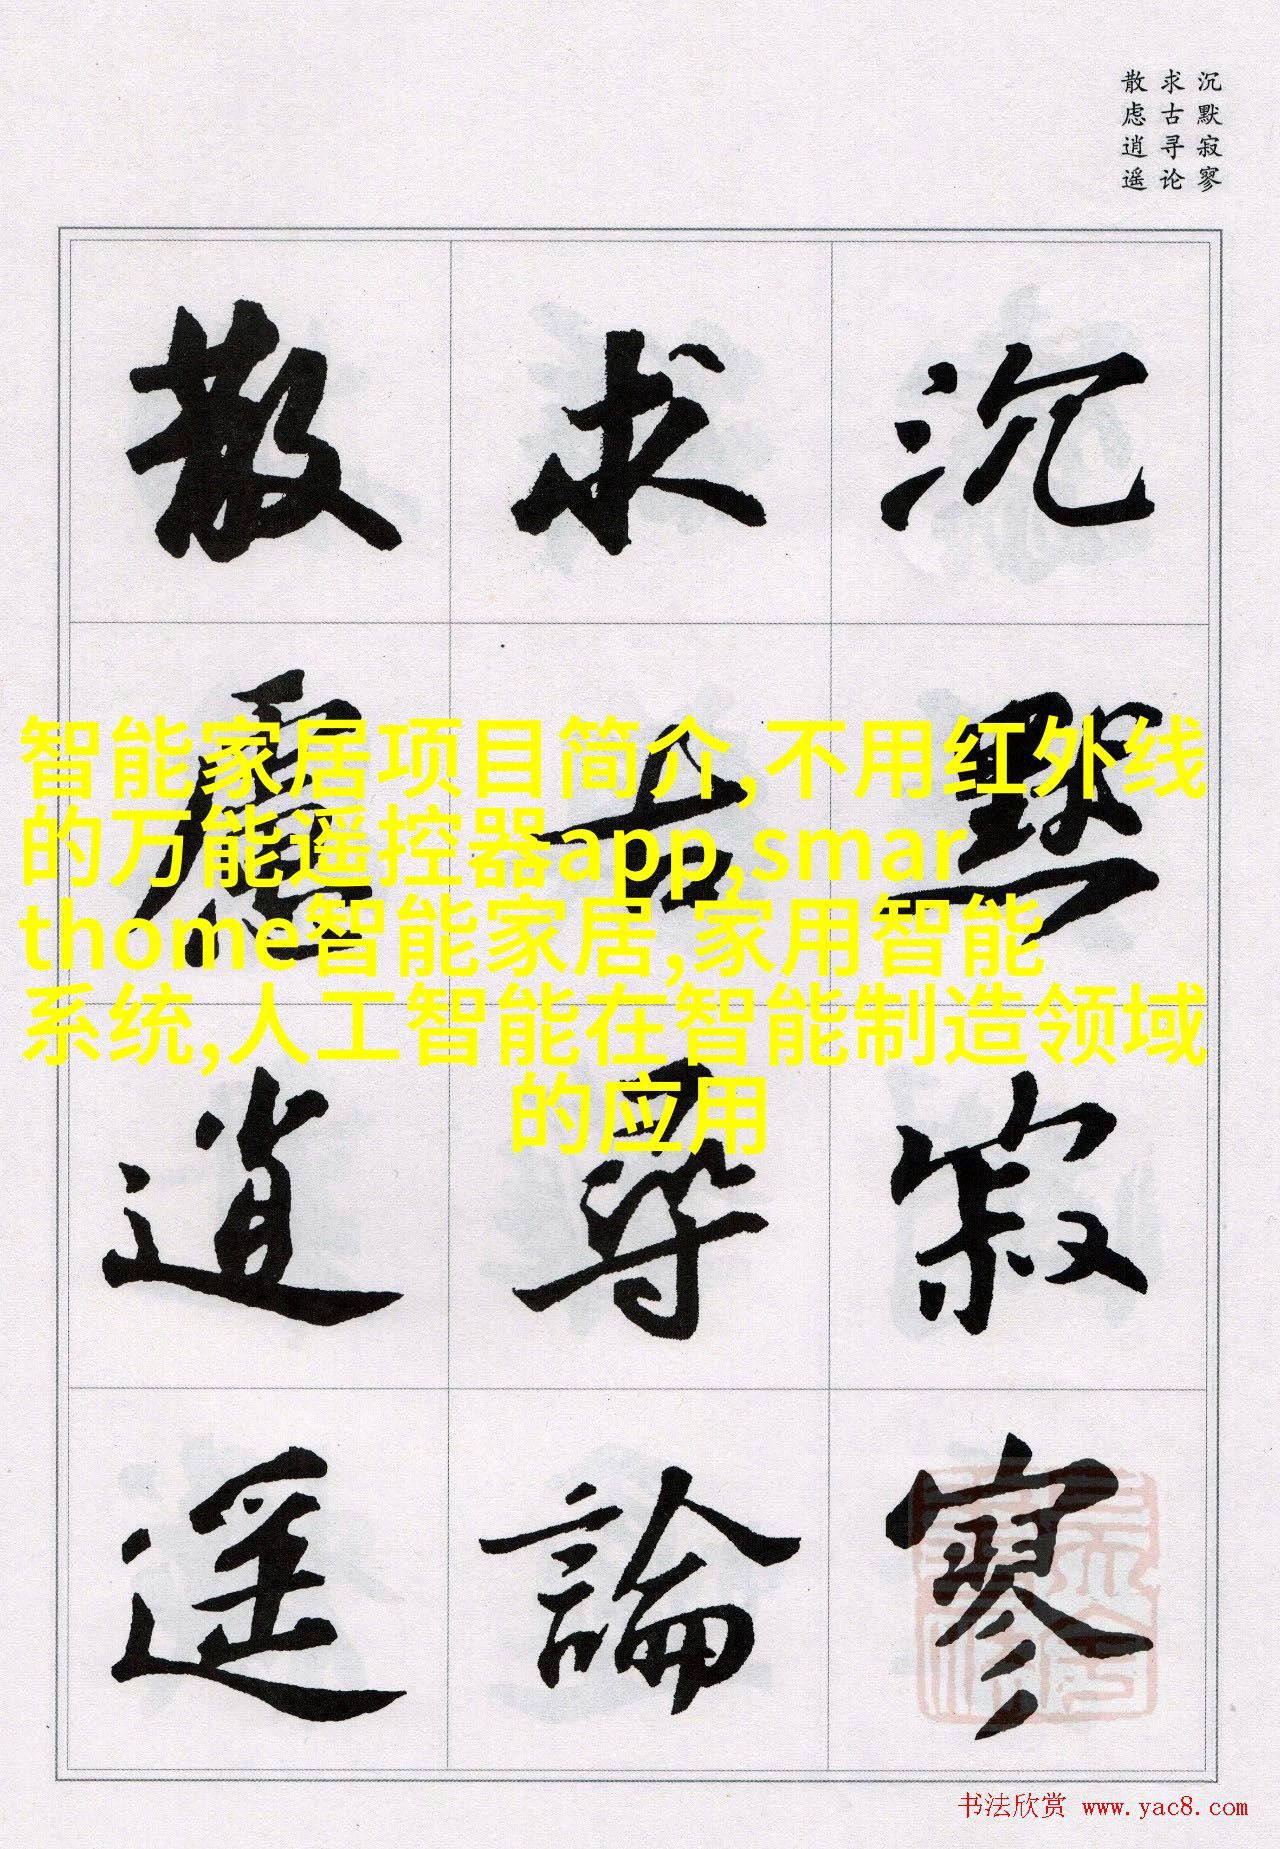 沉默寂寥
求古寻论
散虑逍遥
沉默寂寥
求古尋論
散慮逍遥
智能家居项目简介,不用红外线
的万能遥控器app,smar
thome智能家居,家用智能
系统,人工智能在智能制造领域
的应用
书法欣赏 www.yac8.com